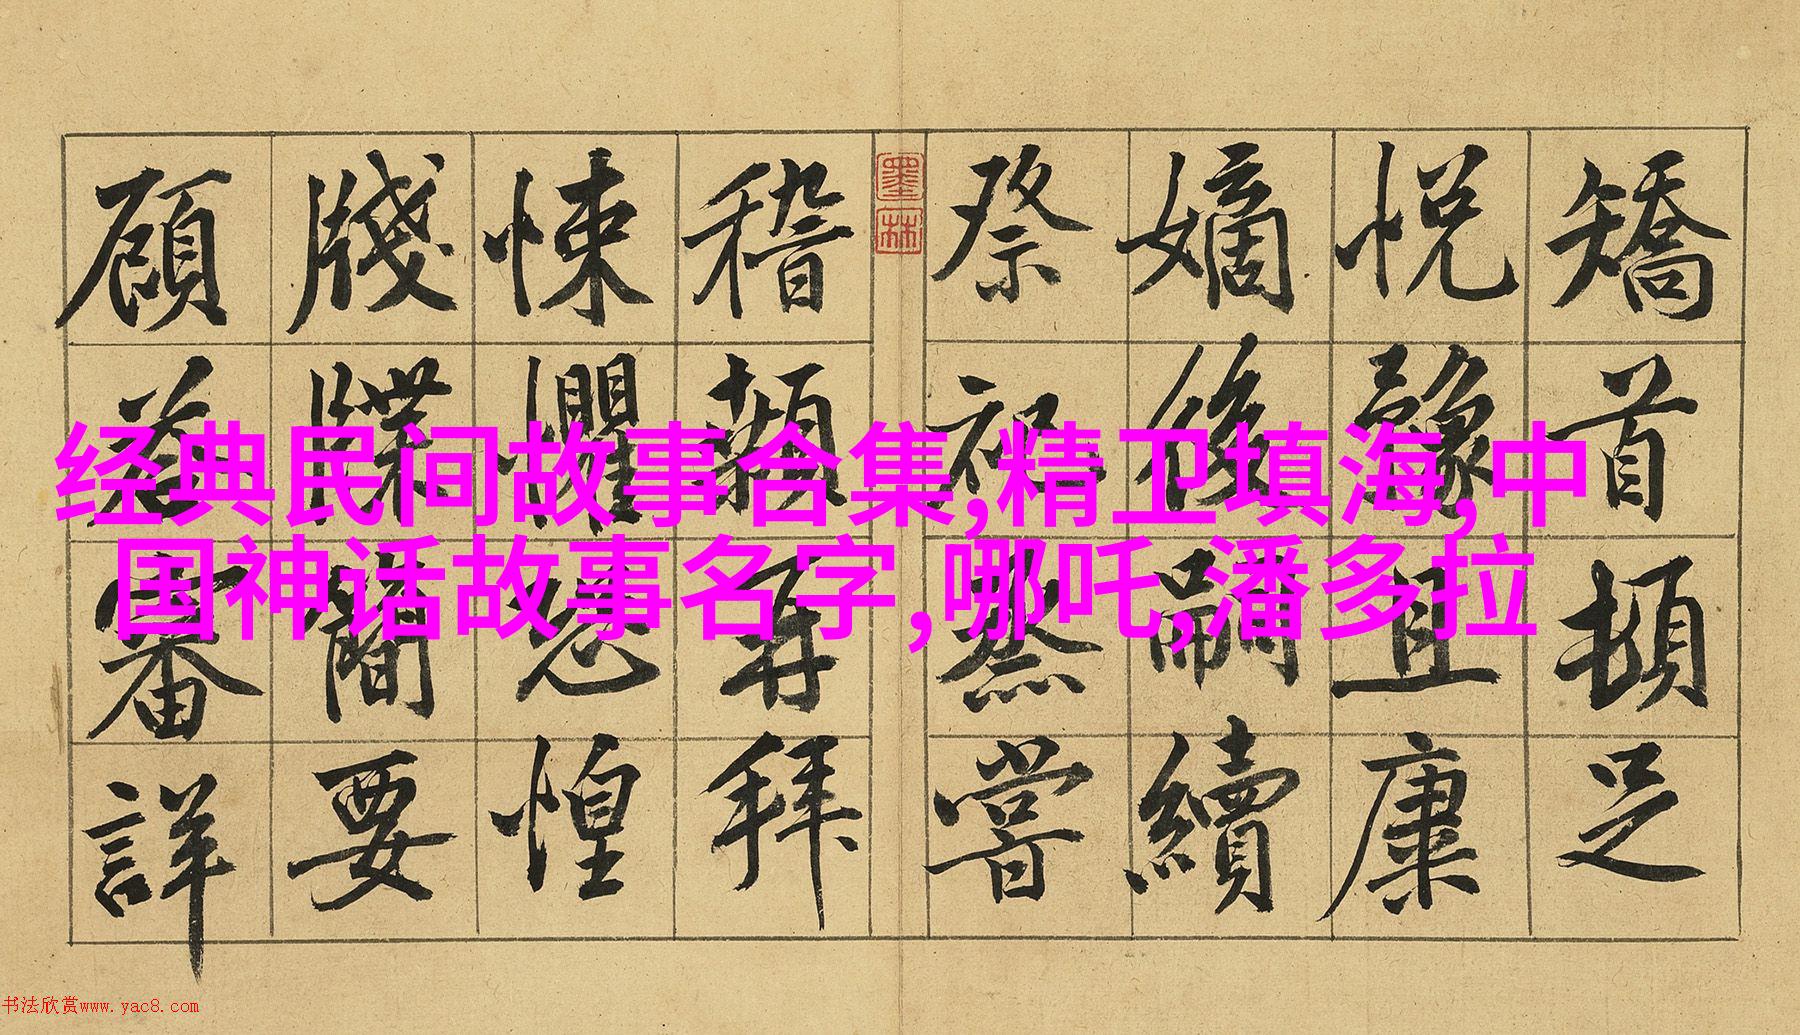 矯首頓足
悅豫且康
嫡後嗣續
祭祀蒸嘗
墨林
稽顙再拜
悚懼恐惶
牋牒簡要
顧荅審詳
经典民间故事合集,精卫填海,中
国神话故事名字,哪吒,潘多拉
书法欣赏www.yac8.com